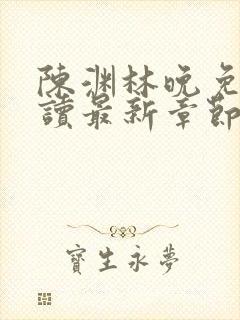 陳淵林晚免
讀最新章節
寶生永夢